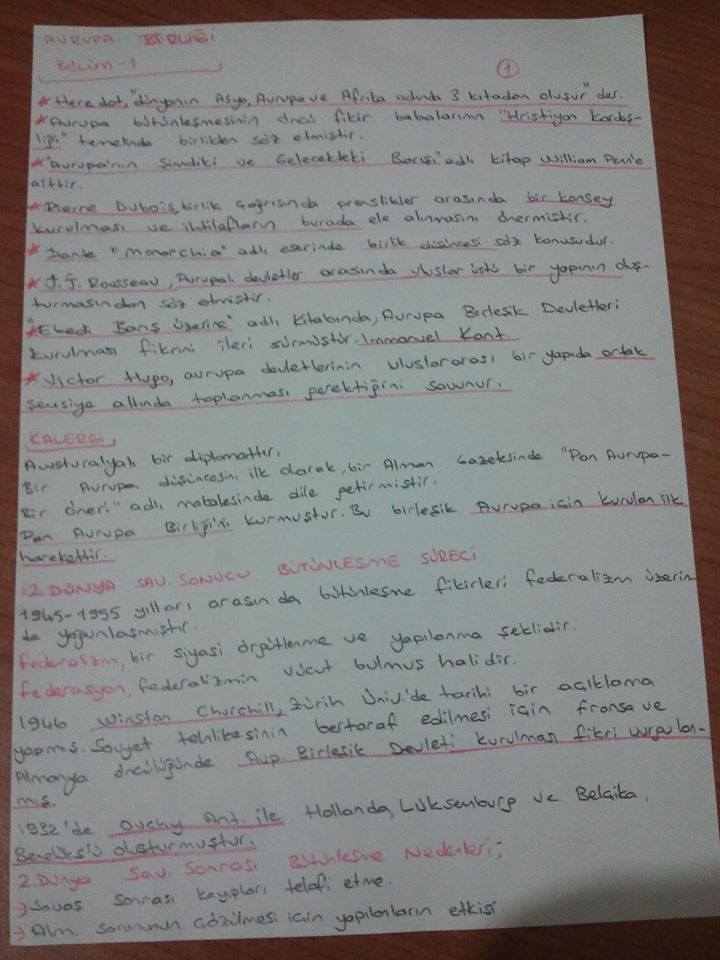 AVRUPA BİRLİĞİ
Bölüm-1
1
* Heredot, "dünyanın Asya, Avrupa ve Afrika adında 3 kıtadan oluşur" der.
* Avrupa bütünleşmesinin öncü fikir babalarının "Hristiyan Kardeş-
liği" temelinde birlikden söz etmiştir.
* "Avrupa'nın Şimdiki ve Gelecekteki Barışı" adlı kitap William Penn'e
aittir.
* Pierre Dubois, birlik çağrısında prenslikler arasında bir konsey
kurulması ve ihtilafların burada ele alınmasını önermiştir.
* Dante "Monarchia" adlı eserinde birlik düşüncesi söz konusudur.
* J.J. Rousseau, Avrupalı devletler arasında uluslar üstü bir yapının oluş-
turmasından söz etmiştir.
* "Ebedi Barış Üzerine" adlı kitabında, Avrupa Birleşik Devletleri
kurulması fikrini ileri sürmüştür. Immanuel Kant
* Victor Hugo, avrupa devletlerinin uluslararası bir yapıda ortak
şemsiye altında toplanması gerektiğini savunur.
KALERGİ
Avusturalyalı bir diplomattır.
Bir Avrupa düşüncesini ilk olarak, bir Alman Gazetsinde "Pan Avrupa-
Bir öneri" adlı makalesinde dile getirmiştir.
Pan Avrupa Birliği'ni kurmuştur. Bu birleşik Avrupa için kurulan ilk
harekettir.
2. DÜNYA SAV. SONUCU BÜTÜNLEŞME SÜRECİ
1945-1955 yılları arasın da bütünleşme fikirleri federalizm üzerin
de yoğunlaşmıştır.
Federalizm, bir siyasi örgütlenme ve yapılanma şeklidir.
Federasyon, federalizmin vücut bulmuş halidir.
1946 Winston Churchill, Zürih Üniv.'de tarihi bir açıklama
yapmış. Sovyet tehlikesinin bertaraf edilmesi için fransa ve
Almanya öncülüğünde Avp. Birleşik Devleti kurulması fikri vurgulan-
mış.
1932'de Ouchy Ant. ile Hollanda, Lüksemburg ve Belçika,
Benelüks'ü oluşturmuştur.
2. Dünya Sav. Sonrası Bütünleşme Nedenleri;
→ Savaş sonrası kayıpları telafi etme.
→ Alm. sorununun çözülmesi için yapılanların etkisi.